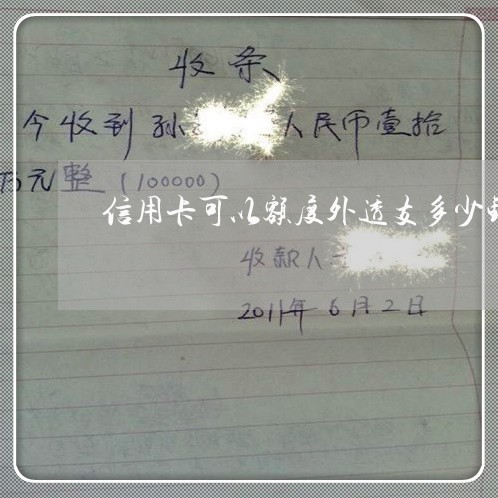 收条
今收到孙 人民币壹拾
万元整(100000)
信用卡可以额度外透支多少
收款人
2011年6月2日